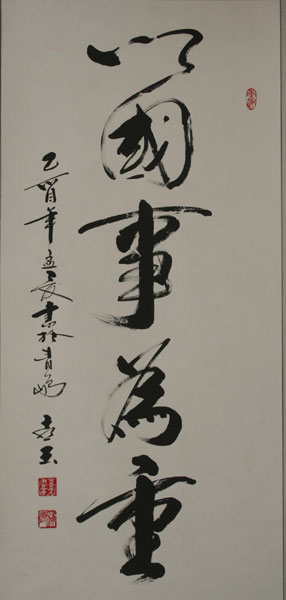 以國事為重
乙酉年孟夏書於青島